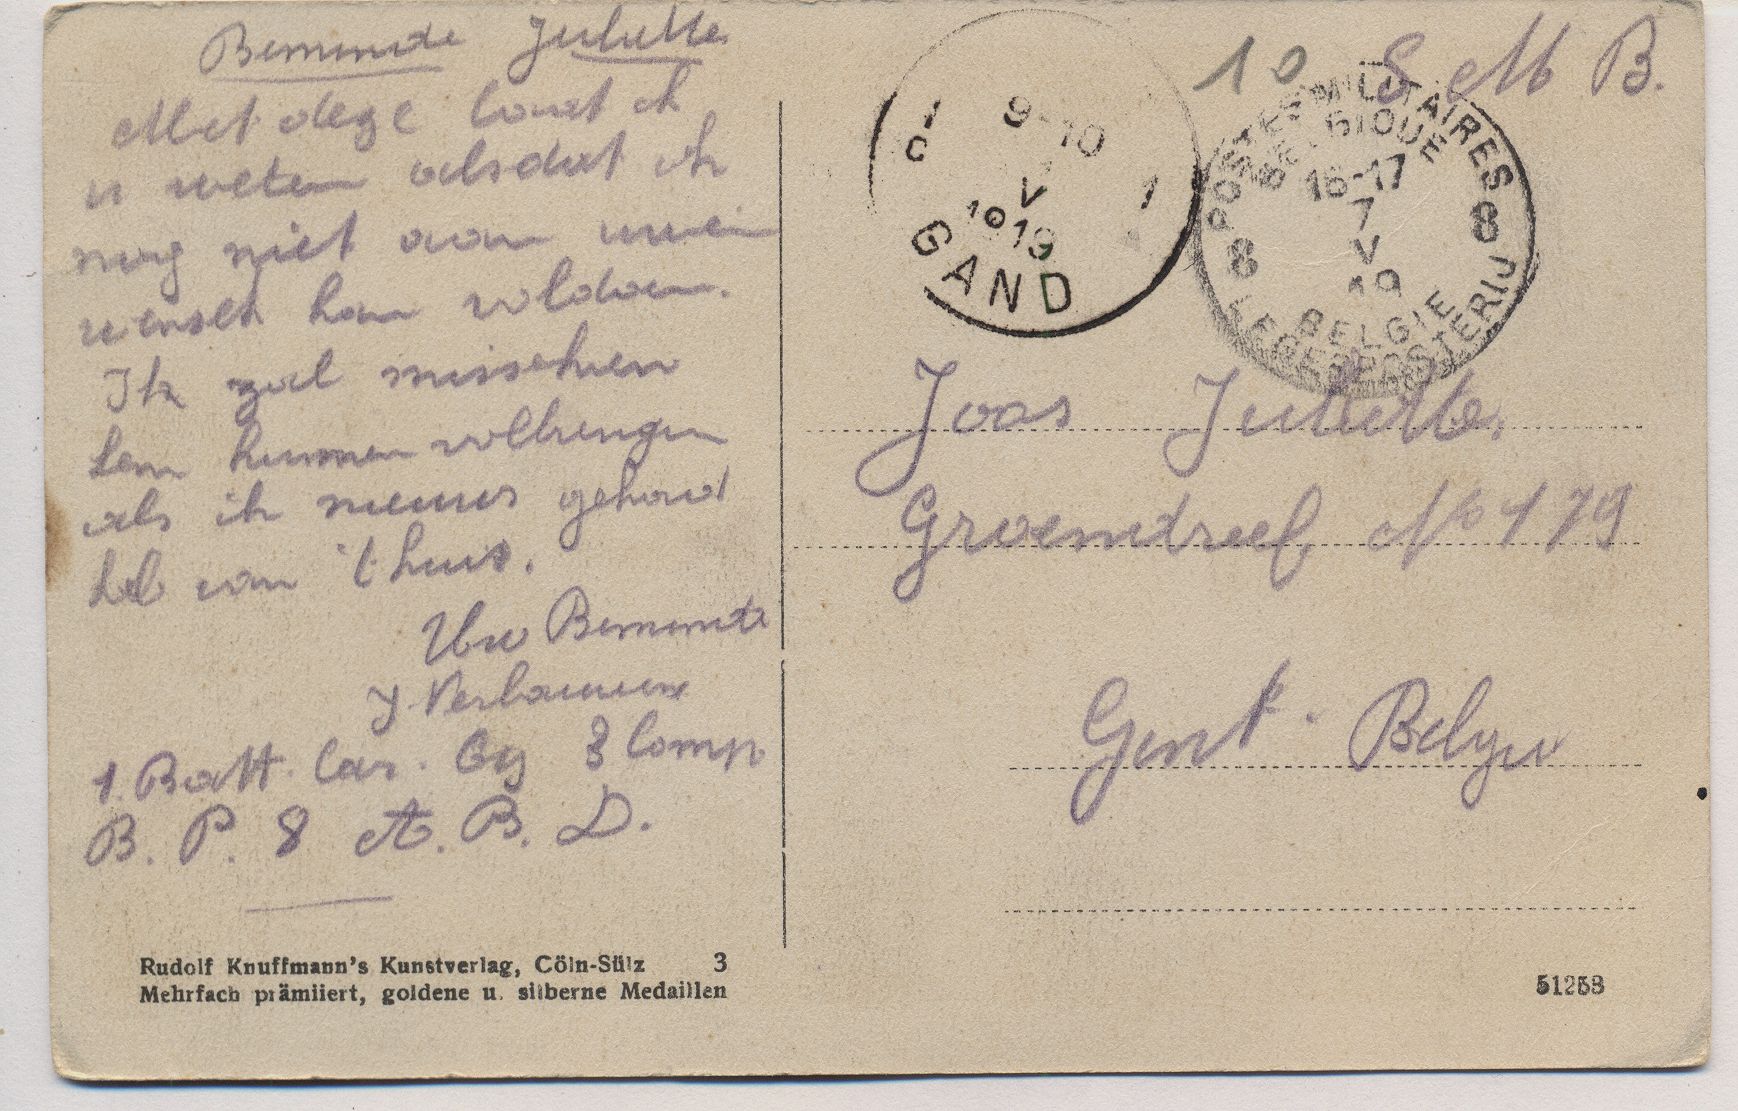 Beminde Juliette
Met deze laat ik
u weten alsdat ik
nog niet aan uwen
wensch kan voldoen.
Ik zal misschien
hem kunnen volbrengen
als ik nieuws gehad
heb van 't huis.
Uw Beminde
J.
1. Batt. Car. Cy 3 Comp
B. P. 8 A. B. D.
Rudolf Knuffmann's Kunstverlag, Cöln-Sülz 3
Mehrfach prämiiert, goldene u. silberne Medaillen
10 S M B.
9-10
V
1919
GAND
1 1
POSTES MILITAIRES
BELGIQUE
16-17
7
V
19
8 8
BELGIE
LEGERPOSTERIJ
Joos Juliette.
Groendreef No 179
Gent. Belgie
51253